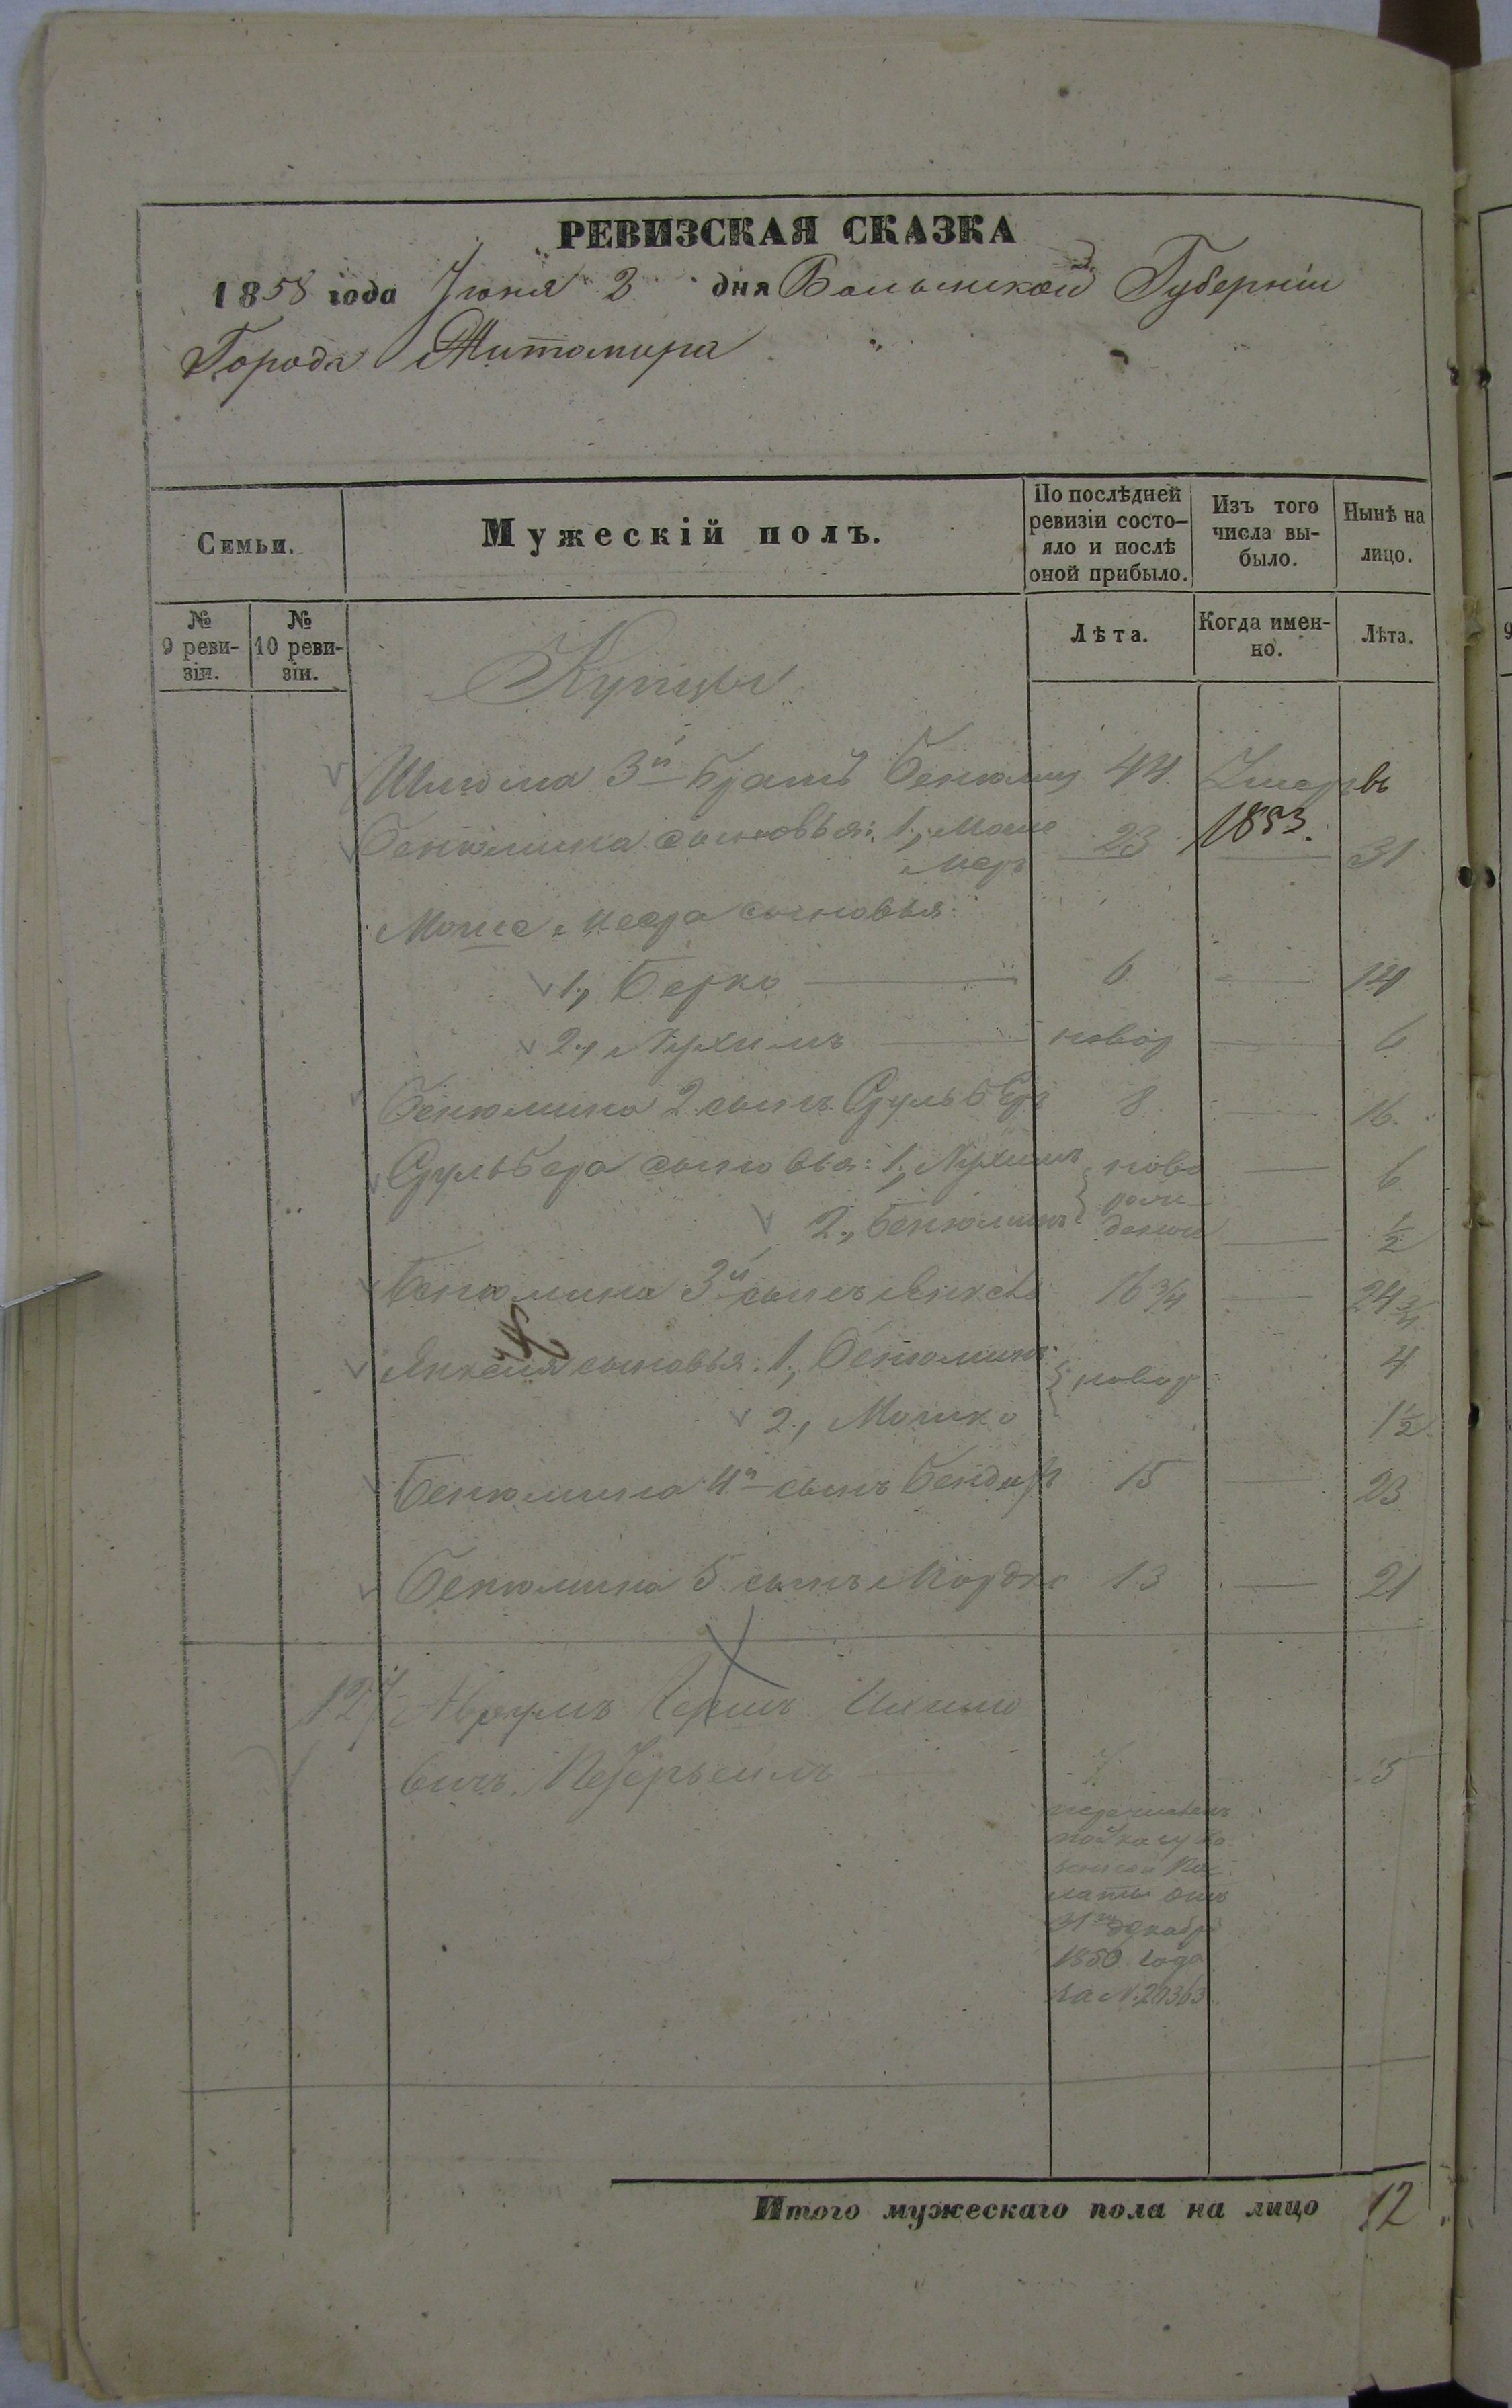 РЕВИЗСКАЯ СКАЗКА
1858 года Іюня 2 дня Волынской Губерніи
Города Житомира
Семьи.
Мужескій полъ.
По послѣдней ревизіи состо-
яло и послѣ
оной прибыло.
Изъ того
числа вы-
было.
Нынѣ на
лицо.
№
9 реви-
зіи.
№
10 реви-
зіи.
Лѣта.
Когда имен-
но.
Лѣта.
Купцы
Шлиома 3й братъ Бенюмин 44. Умеръ въ
1853.
Бенюмина сыновья: 1, Моше
Меръ 23 31
Моше Меера сыновья:
1, Берко 6 14
2, Нухимъ новор 6
Бенюмина 2 сынъ Сруль Бер 8 16.
Сруль Бера сыновья: 1, Нухимъ ново 6
рож
2, Бенюминъ денные 1/2
Бенюмина 3й сынъ Янкель 16 3/4 24 3/4
Янкеля сыновья: 1, Бенюминъ новор 4
2, Мошко 1 1/2
Бенюмина 4й сынъ 15 23
Бенюмина 5 сынъ Мордко 13 21
127 Аврумъ Гершъ
вичъ 7 15
перечисленъ
по указу Ка-
зенной Па-
латы отъ
31го декабря
1850 года
за N. 20363
Итого мужескаго пола на лицо 12